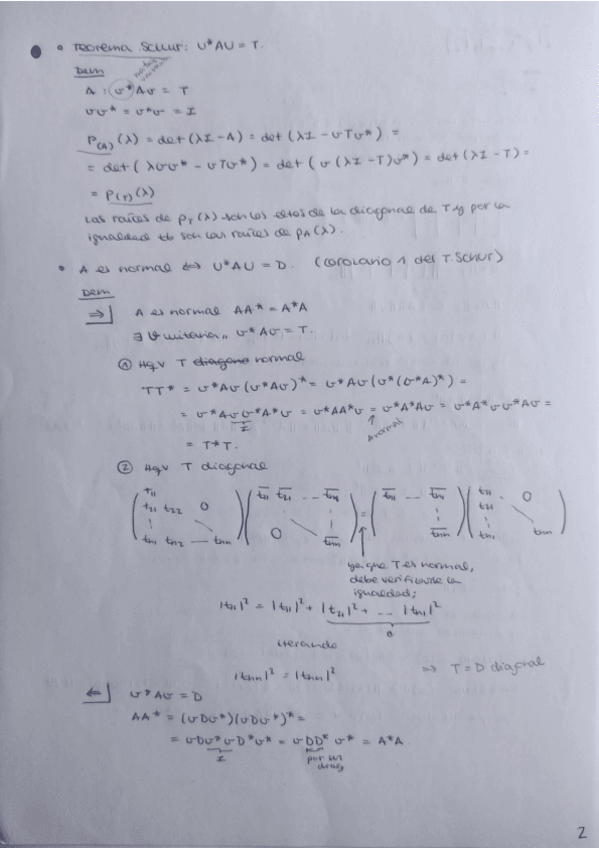 • Teorema Schur: U*AU = T.
Dem
matriz unitaria
A : U*AU = T
UU* = U*U = I
P(A)(λ) = det(λI - A) = det(λI - UTU*) =
= det(λUU* - UTU*) = det(U(λI - T)U*) = det(λI - T) =
= P(T)(λ)
Las raíces de pT(λ) son los eltos de la diagonal de T y por la
igualdad tb son las raíces de pA(λ).
• A es normal ⟺ U*AU = D. (corolario 1 del T. Schur)
Dem
⇒ A es normal AA* = A*A
∃ U unitaria,, U*AU = T.
① Hqv T diagono normal
TT* = U*AU(U*AU)* = U*AU(U*(U*A)*) =
= U*AUU*A*U = U*AA*U = U*A*AU = U*A*UU*AU =
I
A normal
= T*T.
② Hqv T diagonal
(t11 t21 t22 0 ⋮ tn1 tn2 — tnn)(t̄11 t̄21 ... t̄n1 ⋮ 0 t̄nn) = (t̄11 ... t̄n1 ⋮ t̄nn)(t11 . 0 t21 ⋮ tn1 tnn)
ya que T es normal,
debe verificarse la
igualdad;
|t11|² = |t11|² + |t21|² + ... |tn1|²
0
iterando
|tnn|² = |tnn|² ⇒ T = D diagonal
⇐ U*AU = D
AA* = (UDU*)(UDU*)* =
= UDU*UD*U* = UDD*U* = A*A.
I
por ser
diag
2